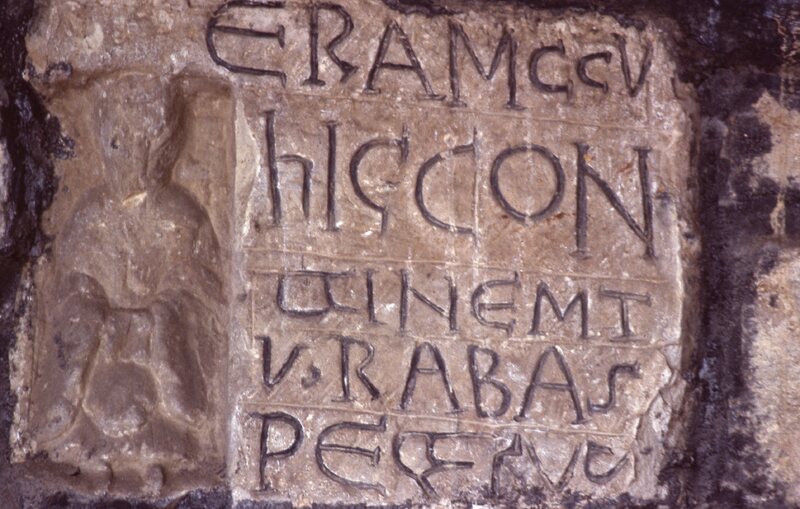 ERAMCCV
hICCON
TINEMT
V. RABAS
PE